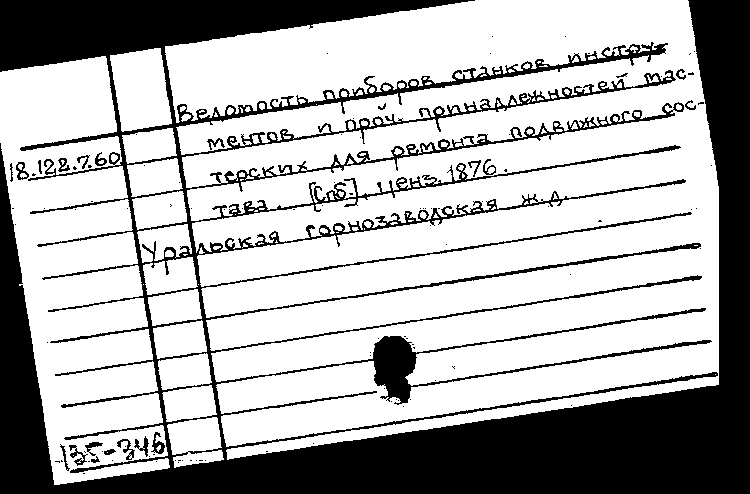 Ведомость приборов, станков, инстру-
ментов и проч. принадлежностей мас-
18.128.7.60
терских для ремонта подвижного сос-
тава. [Спб.], ценз. 1876.
Уральская горнозаводская ж.д.
35-346